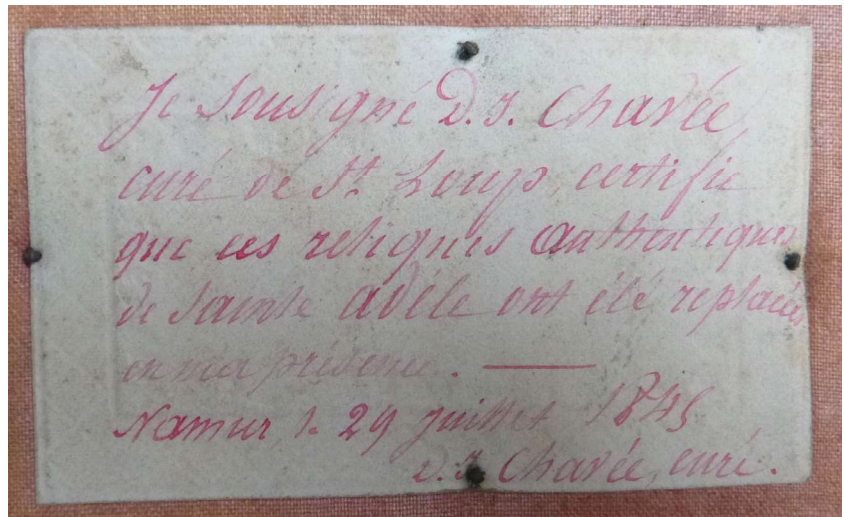 Je Sousigné D. J. Chavée,
curé de St Loup, certifie
que ces reliques authentiques
de Sainte Adèle ont été replacées
en ma présence. —
Namur le 29 Juillet 1845
D. J. Chavée, curé.